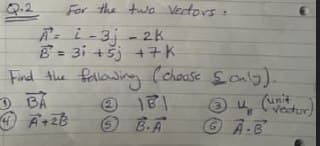 Q.2 For the two Vectors :
A⃗ = i - 3j - 2k
B⃗ = 3i + 5j + 7k
Find the following (choose 5 only).
① B⃗A ② |B⃗| ③ u (unit vector)
④ A⃗ + 2B⃗ ⑤ B⃗.A⃗ ⑥ A⃗.B⃗